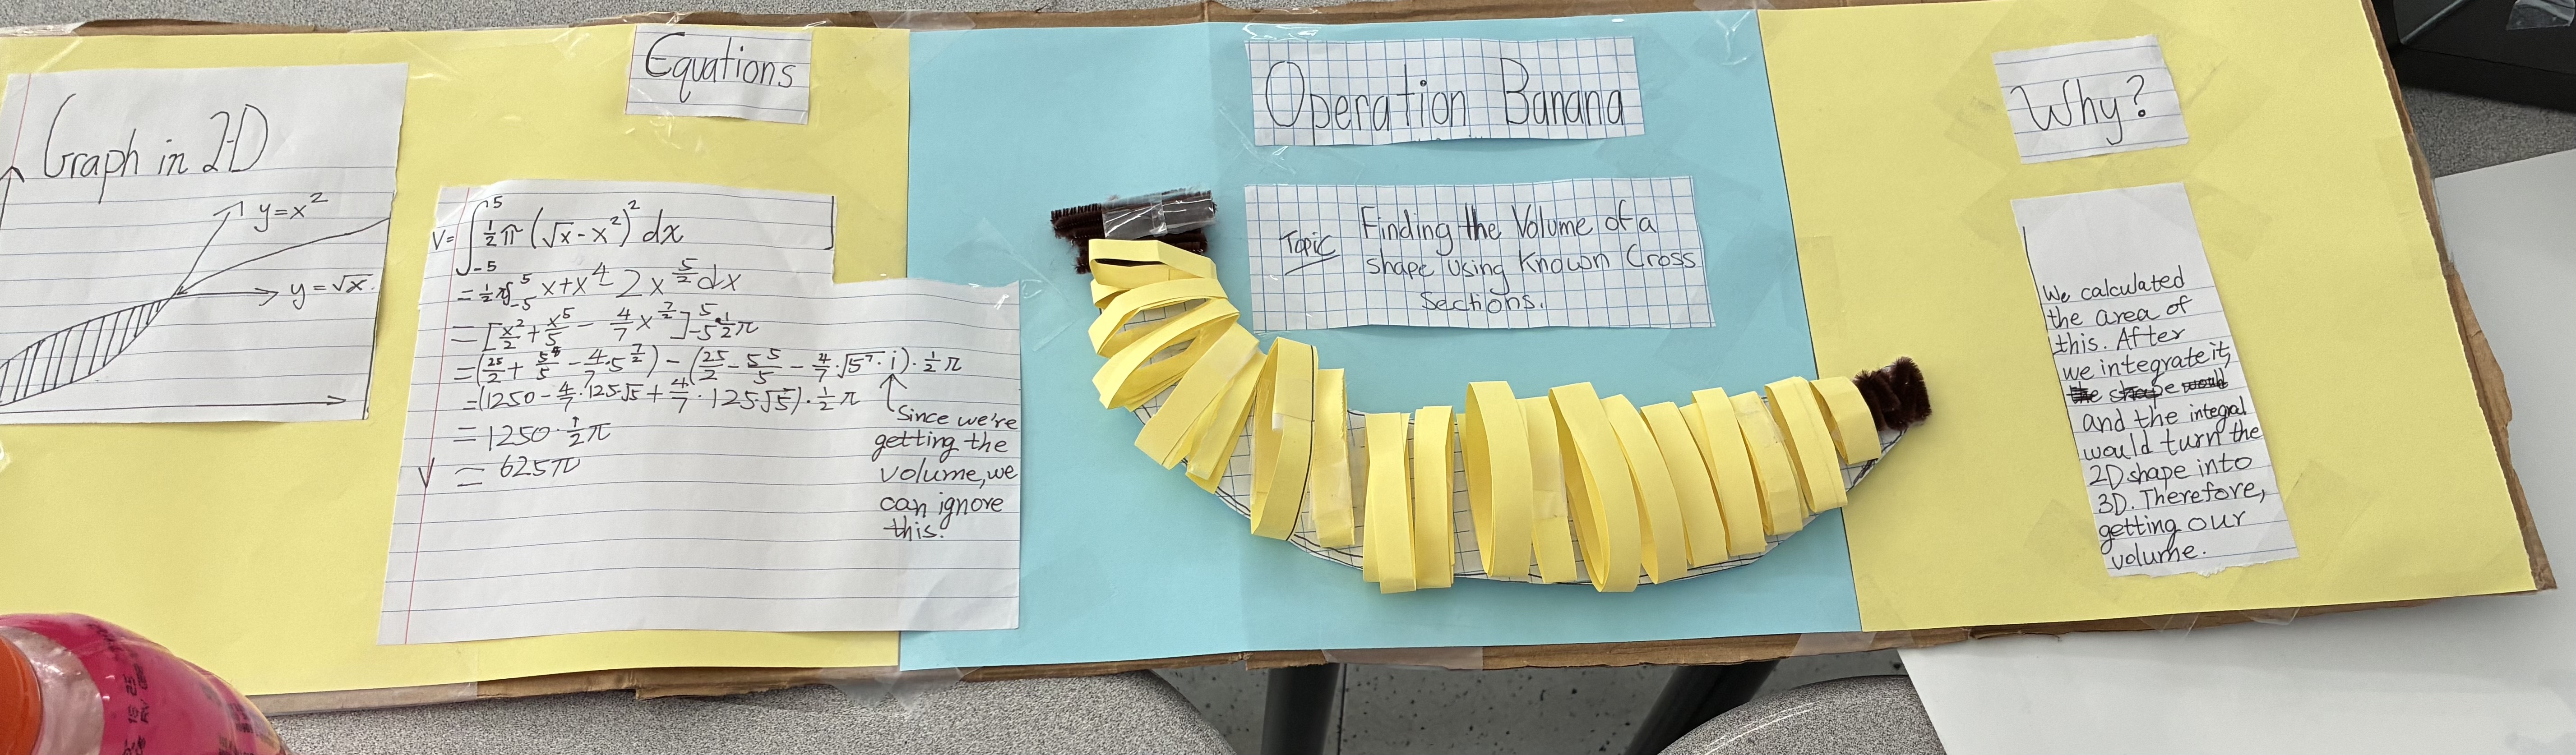 Graph in 2-D
y=x²
y=√x.
Equations
V= ∫₋₅⁵ ½π (√x-x²)² dx
= ½π∫₋₅⁵ x+x⁴ 2x^(5/2) dx
= [x²/2 + x⁵/5 - 4/7 x^(7/2)]₋₅⁵ · ½π
= (25/2 + 5⁵/5 - 4/7·5^(7/2)) - (25/2 - 5⁵/5 - 4/7·√5⁷·i) · ½π
= (1250 - 4/7·125√5 + 4/7·125√5) · ½π
= 1250 · ½π
V = 625π
Since we're
getting the
volume, we
can ignore
this.
Operation Banana
Topic
Finding the Volume of a
shape using Known Cross
Sections.
Why?
We calculated
the area of
this. After
we integrate it,
the shape would
and the integral
would turn the
2D shape into
3D. Therefore,
getting our
volume.